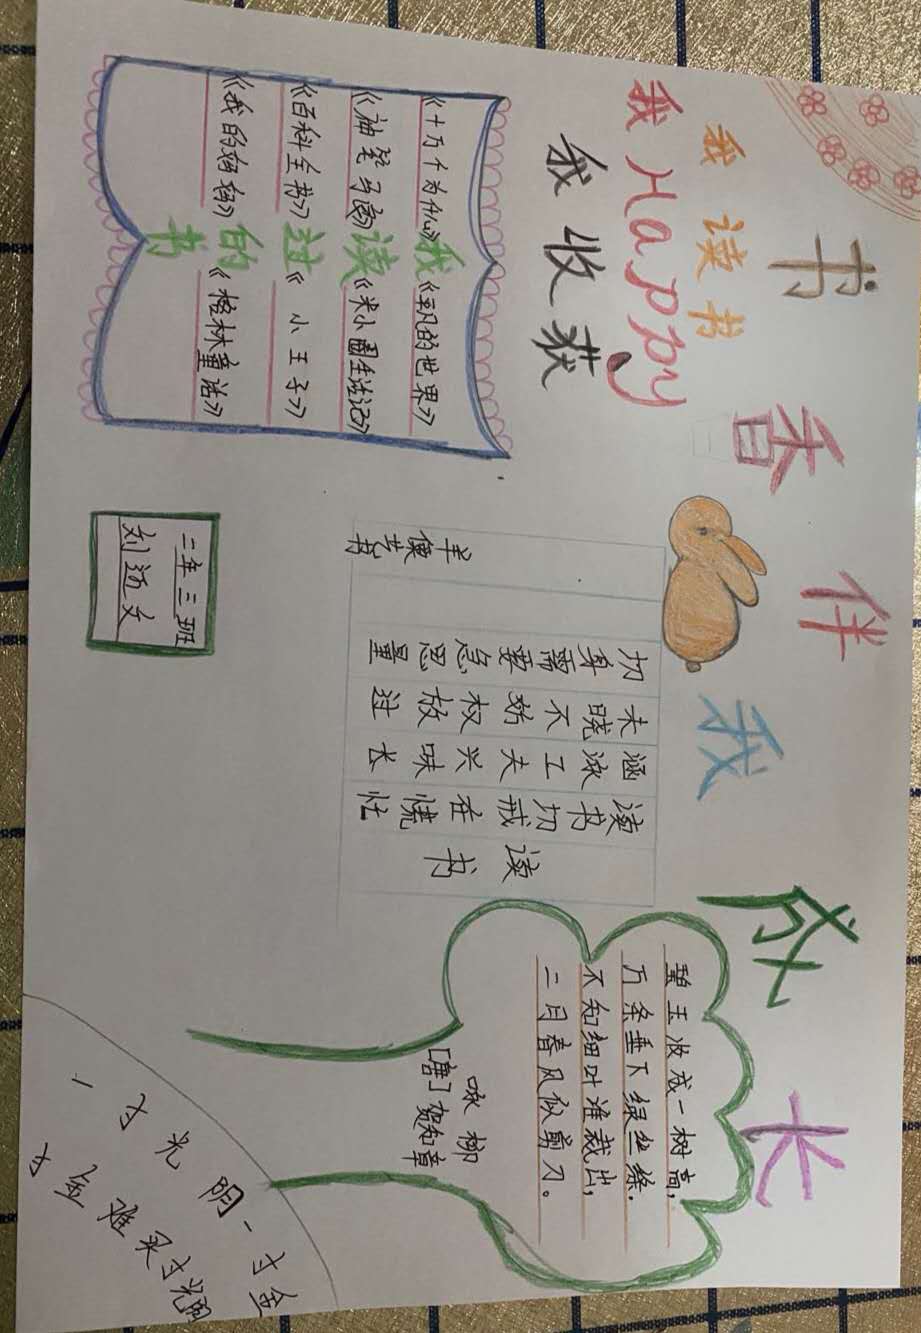 书香伴我成长
我读书
我Happy
我收获
我读过的书
《十万个为什么》
《神笔马良》
《百科全书》
《平凡的世界》
《米小圈生活记》
《小王子》
《格林童话》
二年三班
读书
读书切戒在慌忙
涵泳工夫兴味长
未晓不妨权放过
切身需要急思量
碧玉妆成一树高,
万条垂下绿丝绦.
不知细叶谁裁出,
二月春风似剪刀。
咏柳
[唐]贺知章
一寸光阴一寸金
寸金难买寸光阴